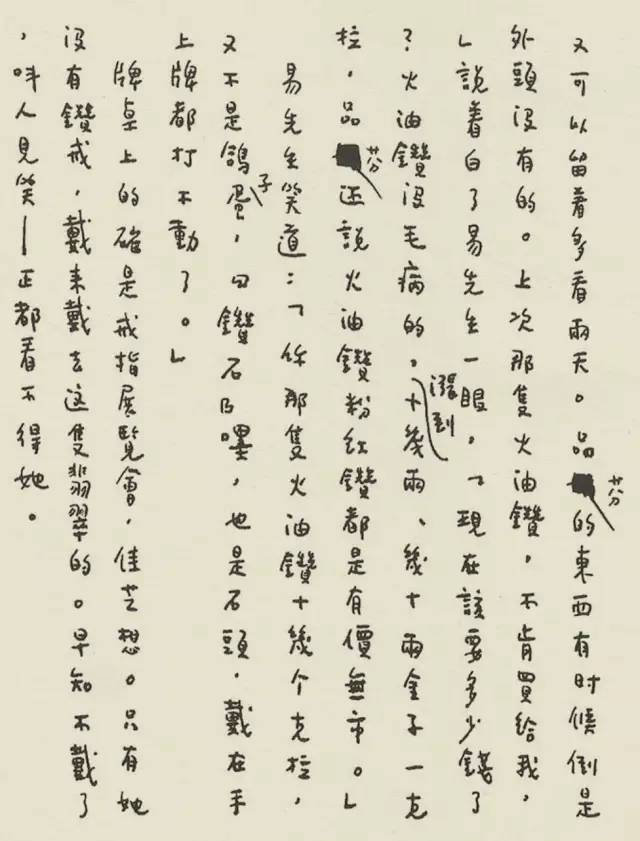 又可以留着多看兩天。品芬的東西有时候倒是
外頭没有的。上次那隻火油鑽,不肯買給我。
」說着白了易先生一眼。「現在該要多少錢了
?火油鑽没毛病的,漲到十幾兩、幾十兩金子一克
拉,品芬还說火油鑽粉红鑽都是有價無市。」
易先生笑道:「你那隻火油鑽十幾个克拉,
又不是鴿子蛋,曰鑽石乃嘿,也是石頭,戴在手
上牌都打不動了。」
牌桌上的確是戒指展覽會,佳芝想。只有她
没有鑽戒,戴来戴去这隻翡翠的。早知不戴了
,呌人見笑—正都看不得她。